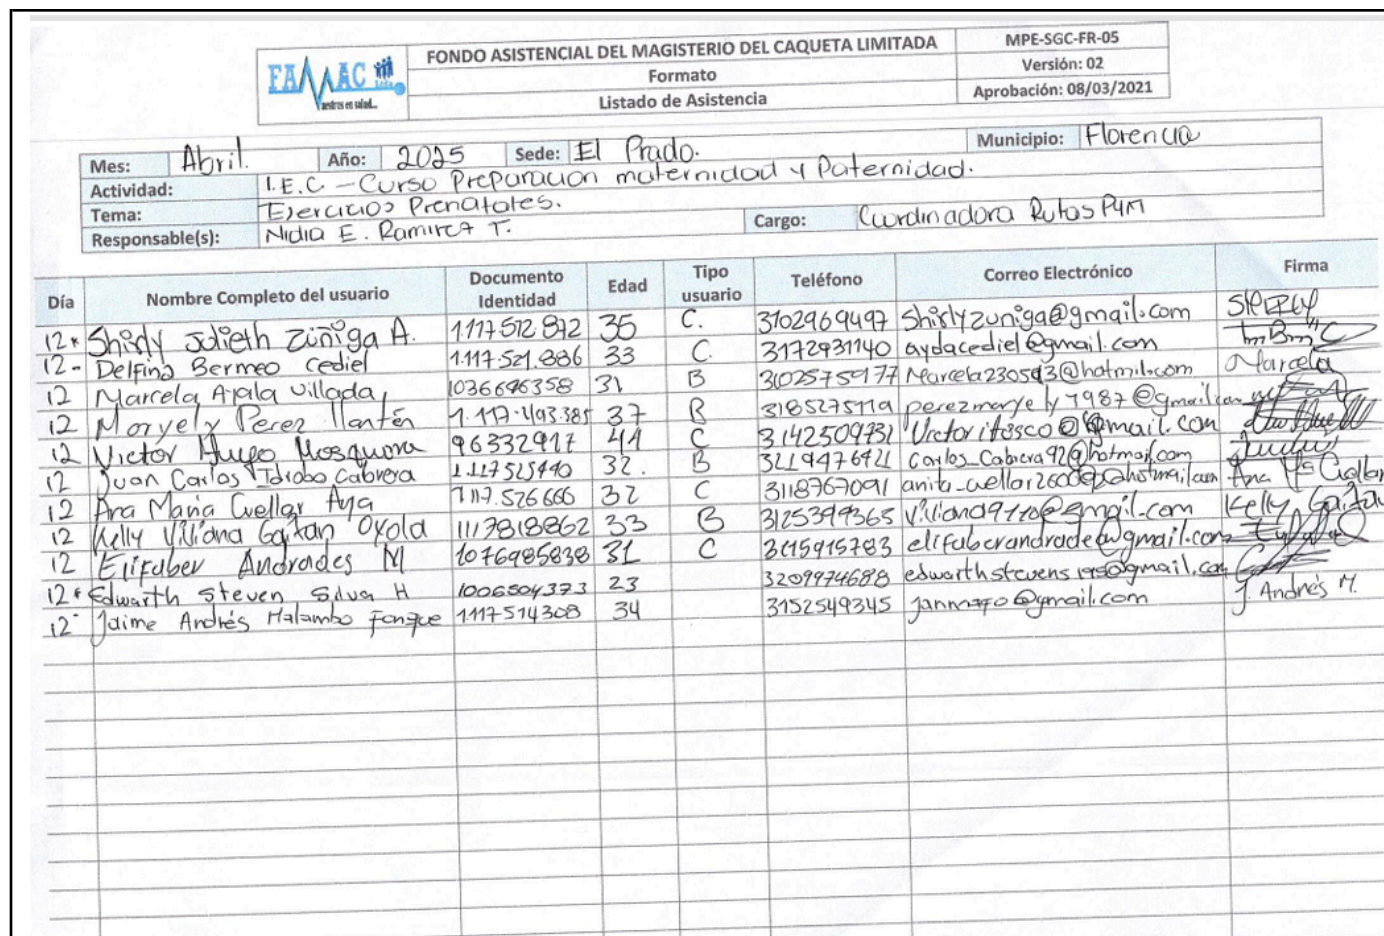 FAMAC Ltda.
Maestros en salud...
FONDO ASISTENCIAL DEL MAGISTERIO DEL CAQUETA LIMITADA
Formato
Listado de Asistencia
MPE-SGC-FR-05
Versión: 02
Aprobación: 08/03/2021
Mes: Abril. Año: 2025 Sede: El Prado. Municipio: Florencia
Actividad: I.E.C - Curso Preparacion maternidad y Paternidad.
Tema: Ejercicios Prenatales.
Responsable(s): Nidia E. Ramirez T. Cargo: Coordinadora Rutas PYM
Día Nombre Completo del usuario Documento Identidad Edad Tipo usuario Teléfono Correo Electrónico Firma
12* Shirly Julieth Zuñiga A. 1.117.512.872 35 C. 3102969497 Shirlyzuniga@gmail.com
12- Delfina Bermeo Cediel 1.117.521.886 33 C. 3172931140 aydacediel@gmail.com
12 Marcela Ayala Villada 1036646358 31 B 3102575977 Marcela
12 Maryely Perez 1.117.493.385 37 B 3185275119 perezmaryely1987@gmail.com
12 Victor Hugo Mosquera 96332917 44 C 3142509731
12 Juan Carlos Idrobo Cabrera 32. B 3219476421 Carlos_Cabrera92@hotmail.com
12 Ana Maria Cuellar Aya 1.117.526.666 32 C 3118767091 Ana Ma Cuellar
12 Kelly Viliana Gaitan Oyola 1117818862 33 B 3125399365 Viliana9110@gmail.com Kelly Gaitan
12 Elifaber Andrades M 1076985838 31 C 3115915783 elifaberandrade@gmail.com
12* Edwarth Steven Silva H 1006504373 23 3209974688
12- Jaime Andrés Malambo 1.117.514.308 34 3152549345 janmayo@gmail.com J. Andrés M.